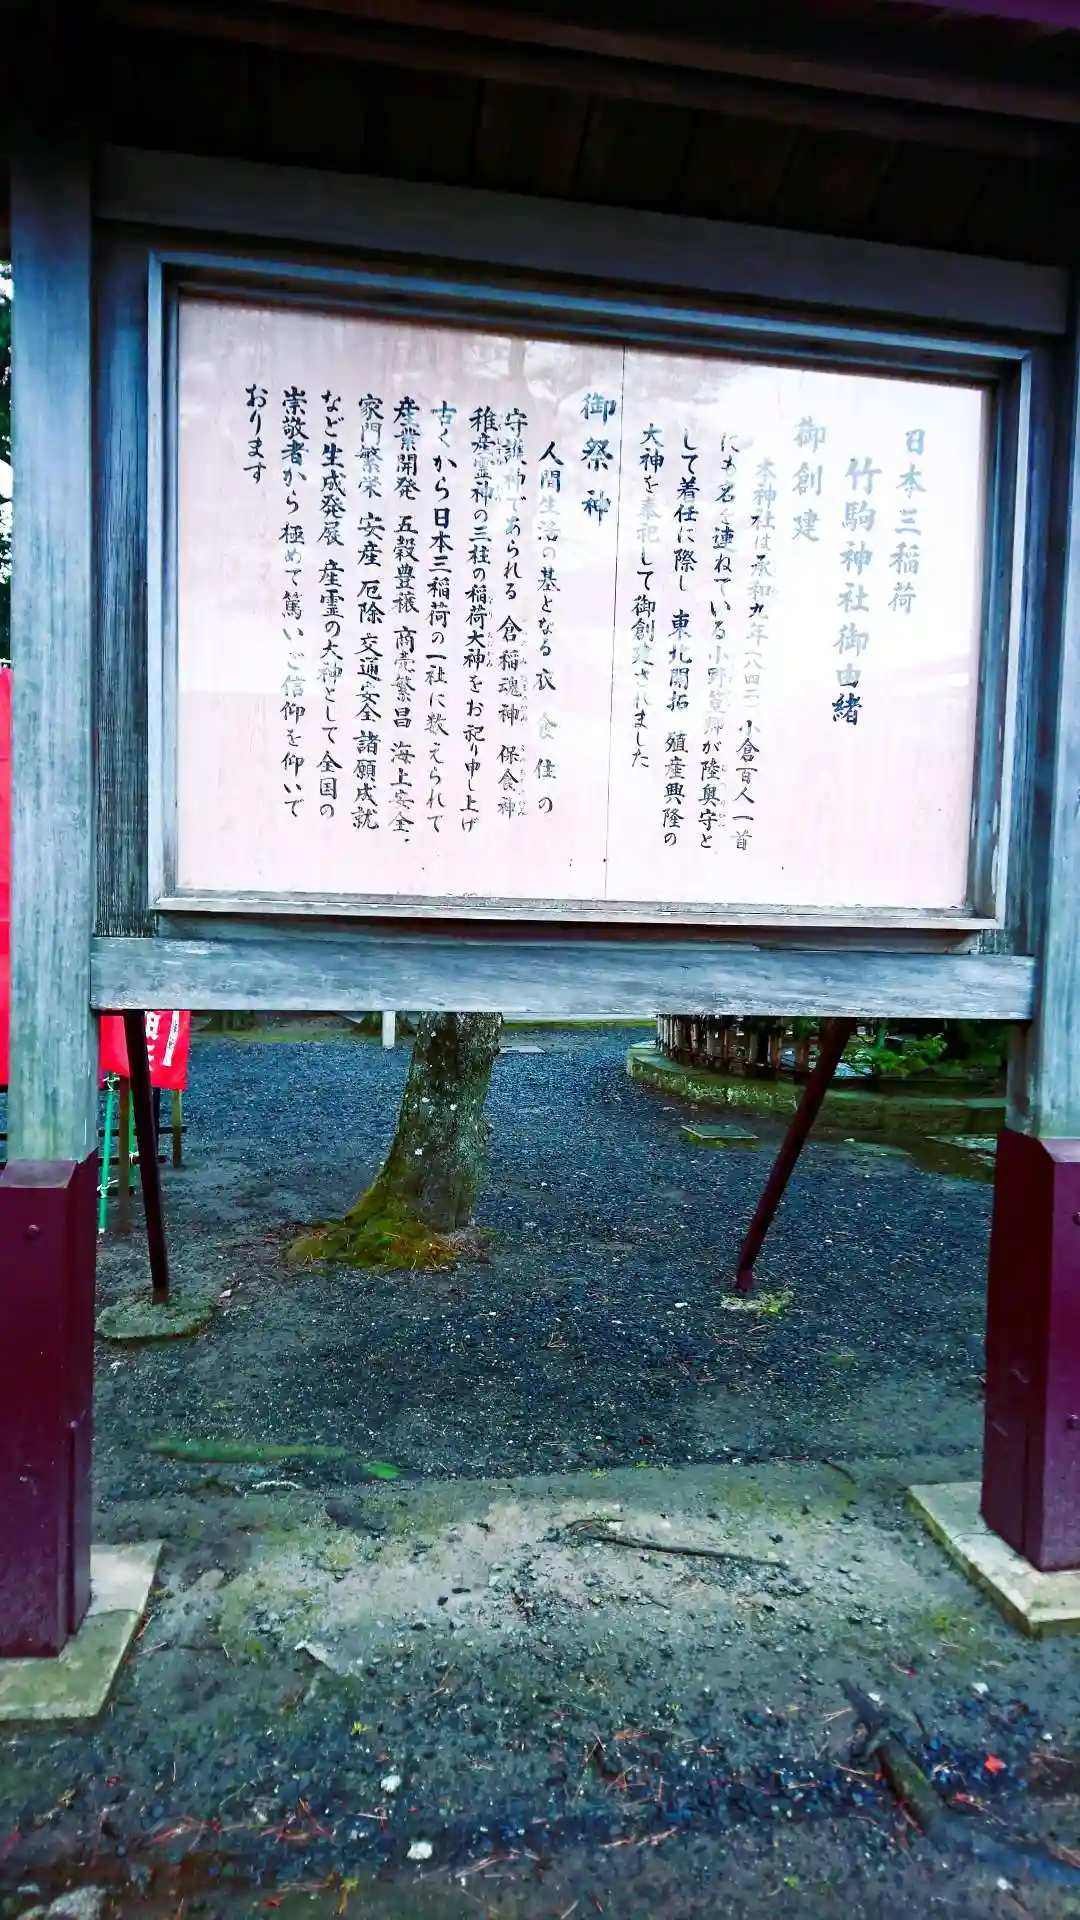 日本三稲荷
竹駒神社御由緒
御創建
本神社は承和九年(八四二)小倉百人一首
にも名を連ねている小野篁卿が陸奥守と
して着任に際し 東北開拓 殖産興隆の
大神を奉祀して御創建されました
御祭神
人間生活の基となる衣 食 住の
守護神であられる 倉稲魂神 保食神
稚産霊神の三柱の稲荷大神をお祀り申し上げ
古くから日本三稲荷の一社に数えられて
産業開発 五穀豊穣 商売繁昌 海上安全・
家門繁栄 安産 厄除 交通安全 諸願成就
など生成発展 産霊の大神として全国の
崇敬者から極めて篤いご信仰を仰いで
おります